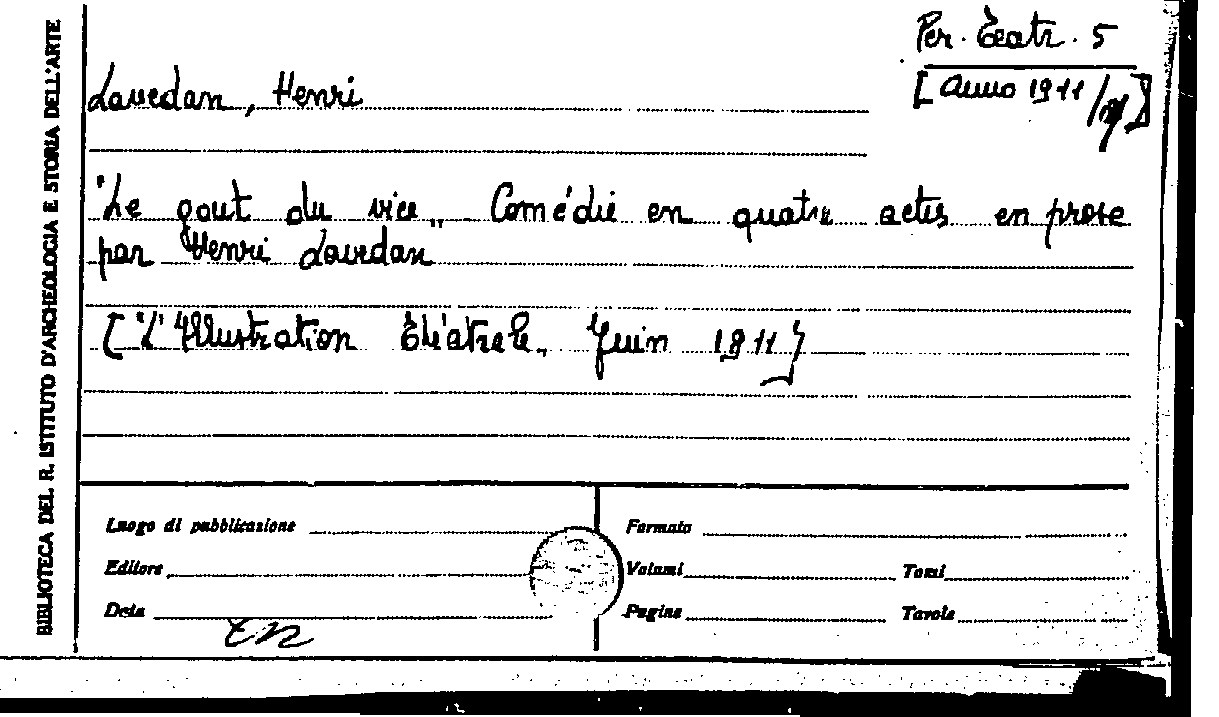 BIBLIOTECA DEL R. ISTITUTO D'ARCHEOLOGIA E STORIA DELL'ARTE
Per. Teatr. 5
[Anno 1911/
Lavedan, Henri
"Le gout du vice„ Comédie en quatre actes en prose
par Henri Lavedan
["L'Illustration théatrale„ Juin 1911]
Luogo di pubblicazione
Formato
Editore
Volumi
Tomi
Data
Pagine
Tavole